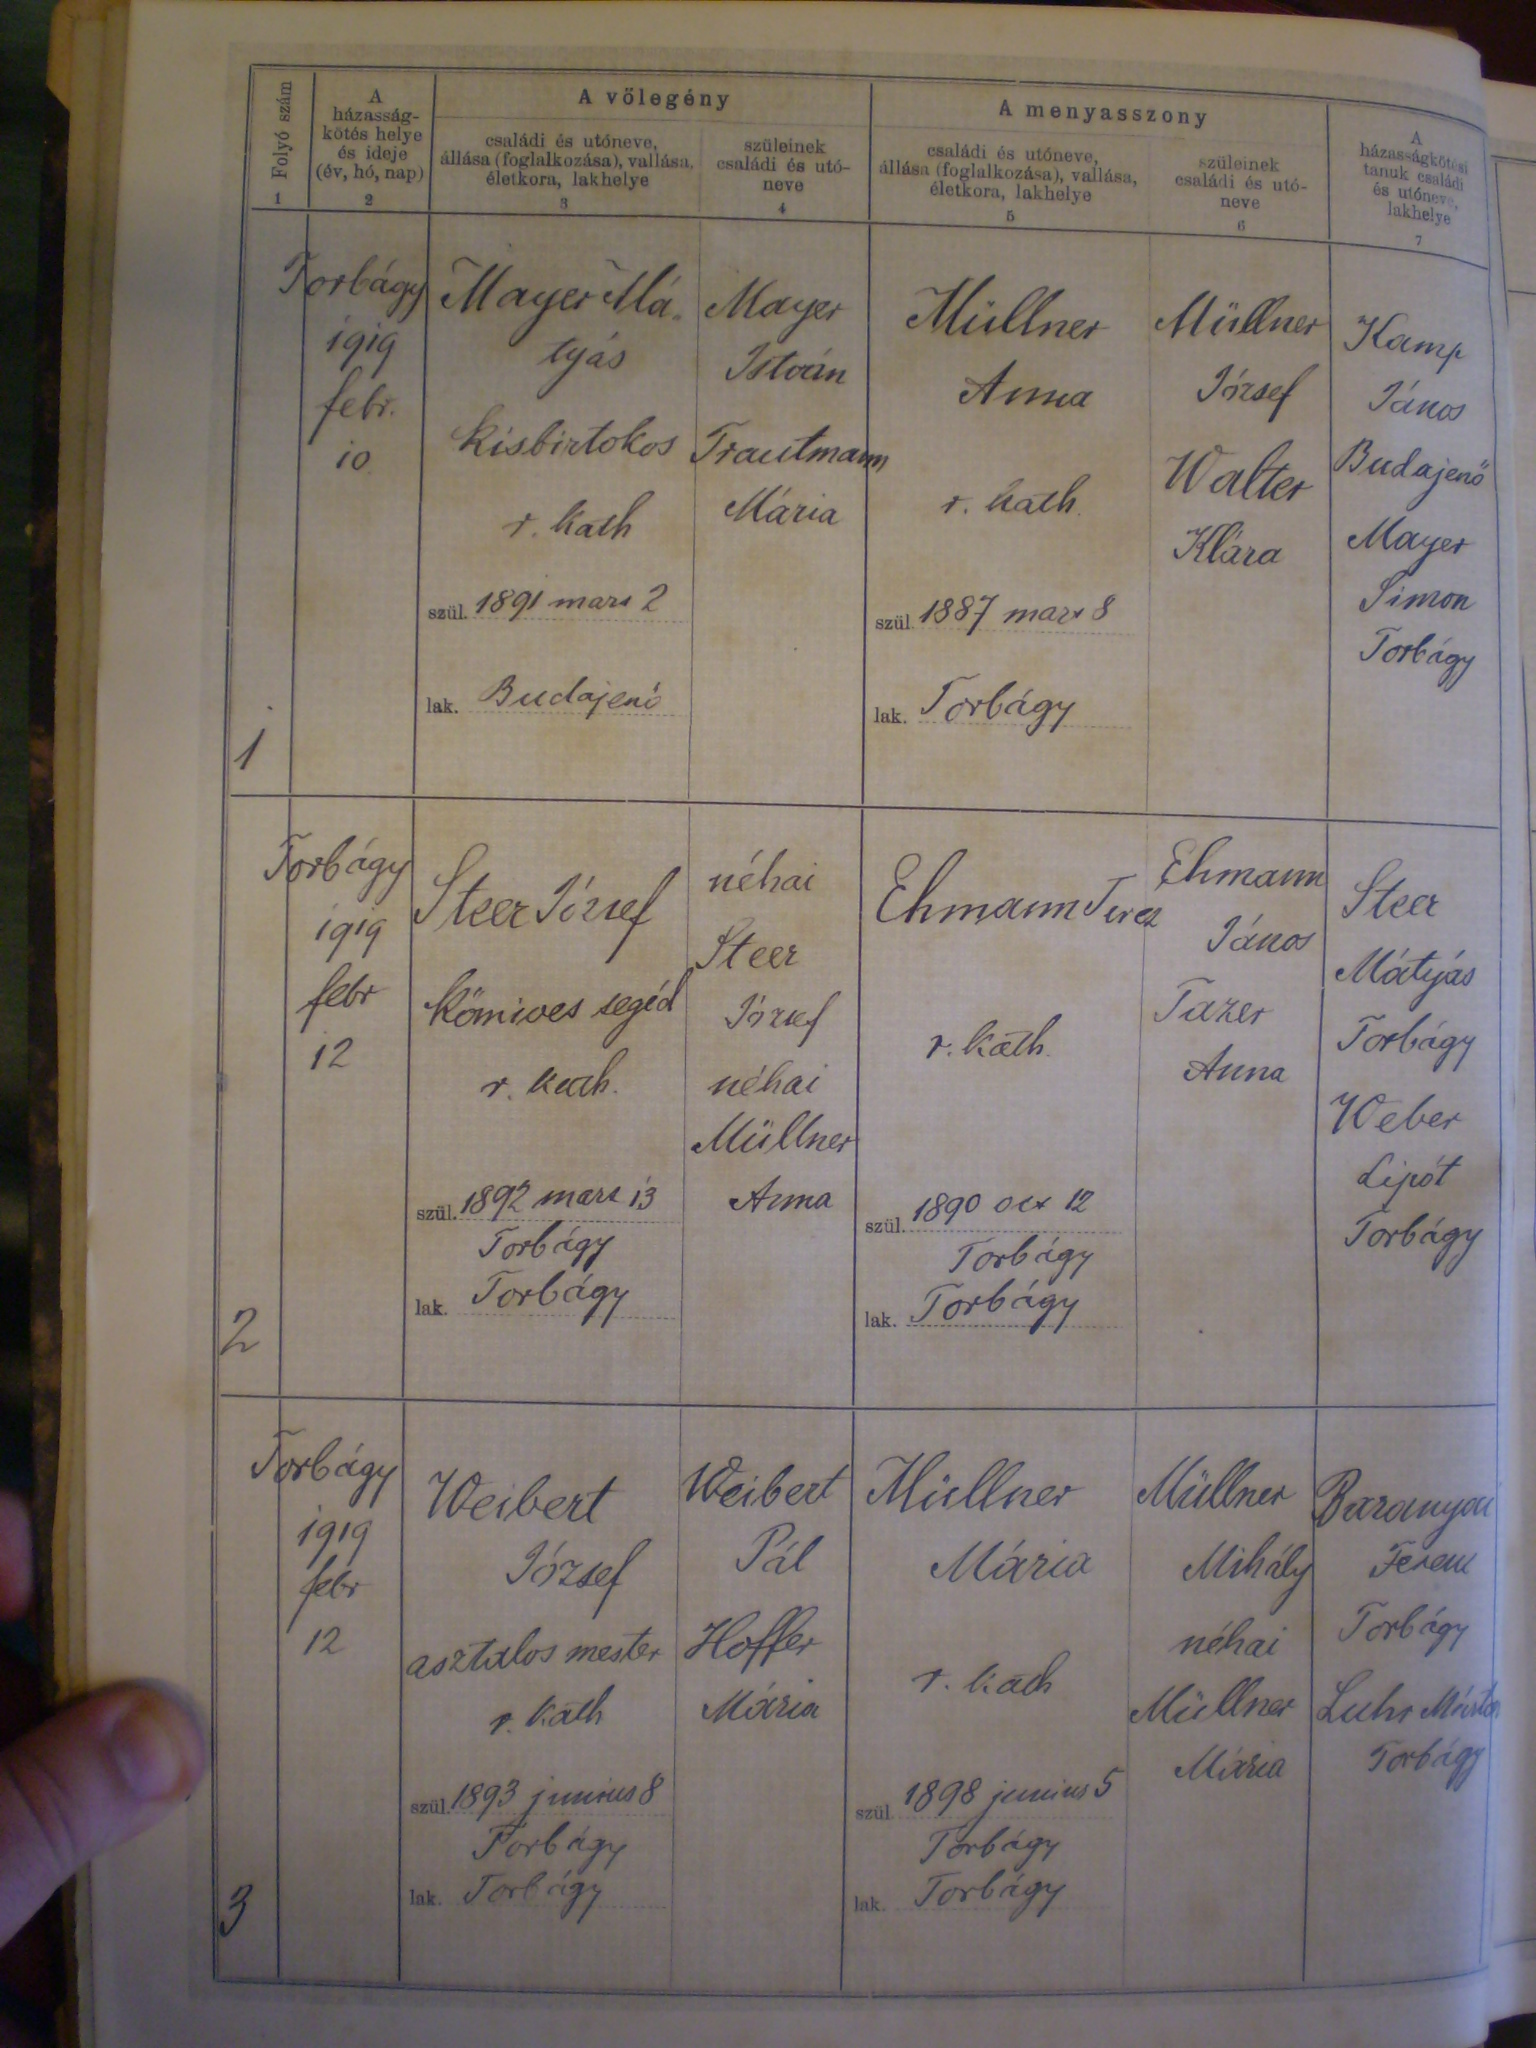 Folyó szám
1
A
házasság-
kötés helye
és ideje
(év, hó, nap)
2
A vőlegény
családi és utóneve,
állása (foglalkozása), vallása,
életkora, lakhelye
3
szüleinek
családi és utó-
neve
4
A menyasszony
családi és utóneve,
állása (foglalkozása), vallása,
életkora, lakhelye
5
szüleinek
családi és utó-
neve
6
A
házasságkötési
tanuk családi
és utóneve,
lakhelye
7
1
Torbágy
1919
febr.
10
Mayer Má-
tyás
kisbirtokos
r. kath
szül. 1891 mars 2
lak. Budajenő
Mayer
István
Trautmann
Mária
Müllner
Anna
r. kath.
szül. 1887 mars 8
lak. Torbágy
Müllner
József
Walter
Klára
Kamp
János
Budajenő
Mayer
Simon
Torbágy
2
Torbágy
1919
febr
12
Steer József
kőmives segéd
r. kath.
szül. 1892 mars 13
Torbágy
lak. Torbágy
néhai
Steer
József
néhai
Müllner
Anna
Ehmann Terez
r. kath.
szül. 1890 oct 12
Torbágy
lak. Torbágy
Ehmann
János
Anna
Steer
Mátyás
Torbágy
Weber
Lipót
Torbágy
3
Torbágy
1919
febr
12
Weibert
József
asztalos mester
r. kath
szül. 1893 junius 8
Torbágy
lak. Torbágy
Weibert
Pál
Hoffer
Mária
Müllner
Mária
r. kath
szül. 1898 junius 5
Torbágy
lak. Torbágy
Müllner
Mihály
néhai
Müllner
Mária
Baranyai
Ferenc
Torbágy
Luhr Márton
Torbágy